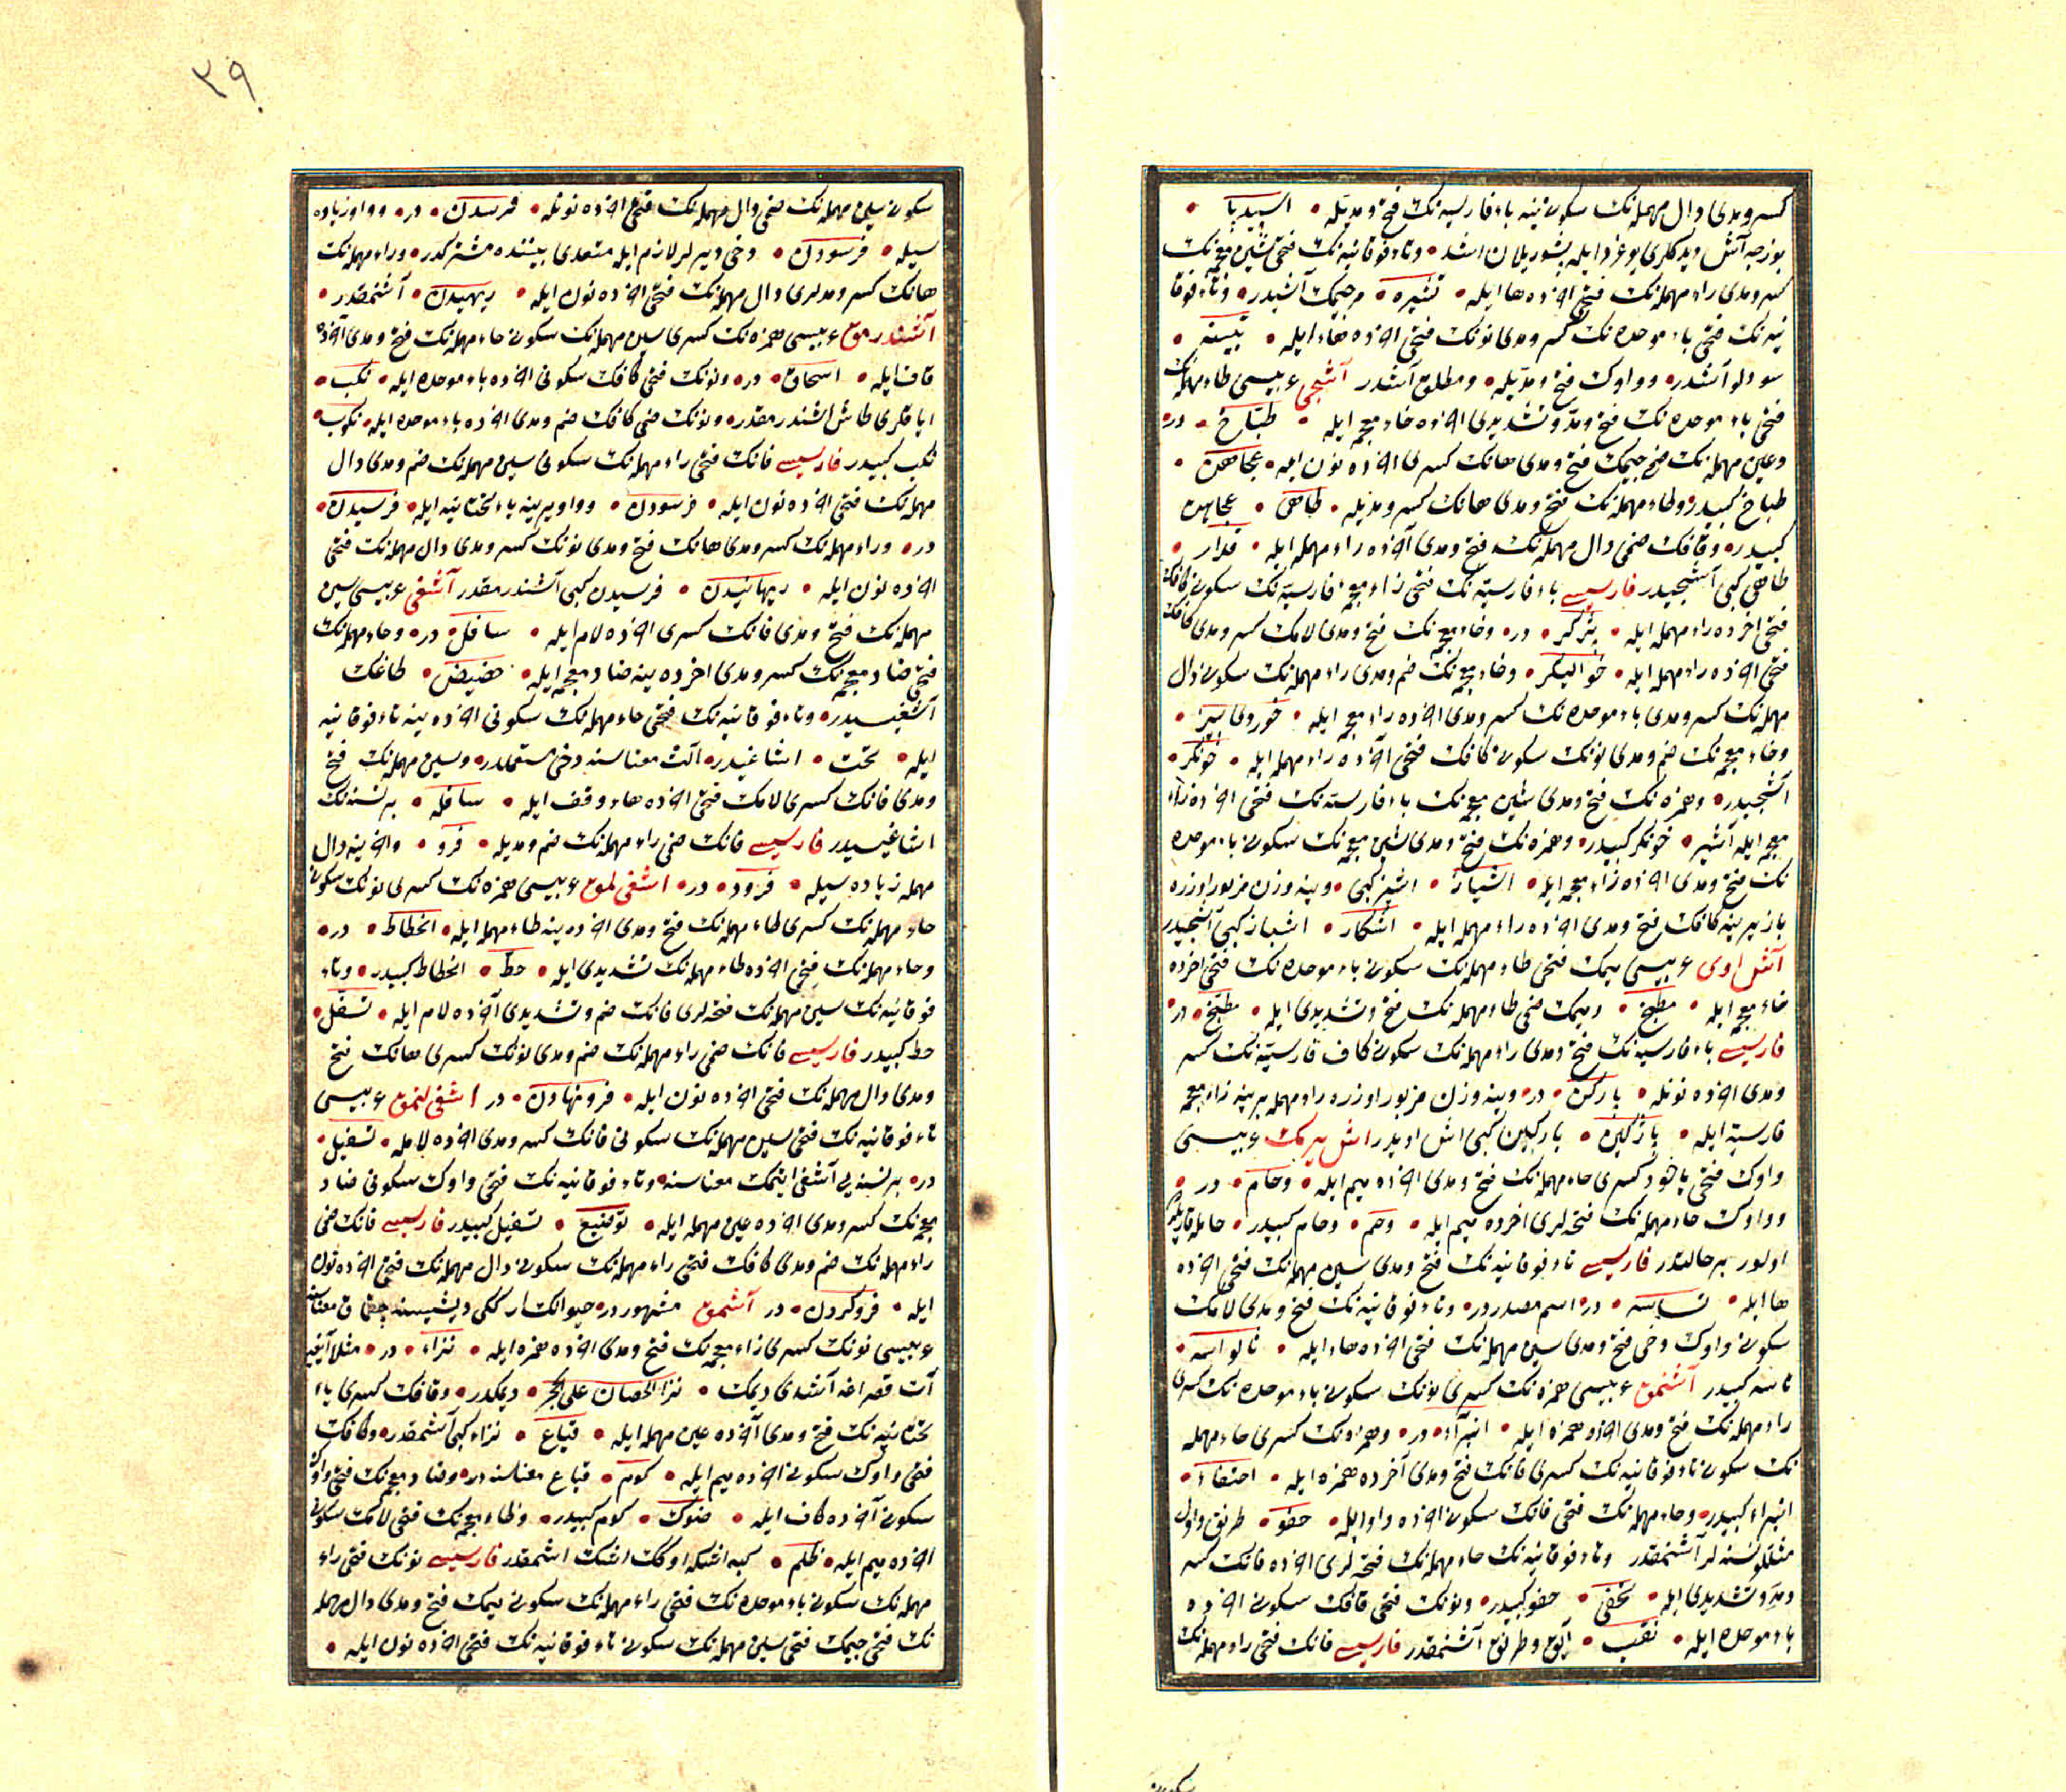 كسر و مدی دال مهمله نك سكونی ینه باء فارسیه نك فتح و مدیله • اسپیدبا •
كسر و مدی راء مهمله نك فتحی اخرده ها ایله • تشیره •
نیه نك فتحی باء موحده نك كسر و مدی نونك فتحی اخرده هاء ایله • تبینه •
سولو آشدر • و واوك فتح و مدیله • و مطلق آشدر آشجی عربیسی طاء مهمله نك
فتحی باء موحده نك فتح و مد و تشدیدی اخرده خاء معجمه ایله • طباخ • در •
و عین مهمله نك ضمی جیمك فتح و مدی هانك كسری اخرده نون ایله • عجاهن •
طباخ كبیدر • و طاء مهمله نك فتح و مدی هانك كسر و مدیله • طاهی • عجاهن
كبیدر • و قافك ضمی دال مهمله نك فتح و مدی آخرده راء مهمله ایله • قدار •
طاهی كبی آشجیدر فارسیسی باء فارسیه نك فتحی زاء معجمه فارسیه نك سكونی كافك
فتحی اخرده راء مهمله ایله • پژكر • در • و خاء معجمه نك فتح و مدی لامك كسر و مدی كافك
فتحی اخرده راء مهمله ایله • خوالیكر • و خاء معجمه نك ضم و مدی راء مهمله نك سكونی دال
مهمله نك كسر و مدی باء موحده نك كسر و مدی اخرده زاء معجمه ایله •
و خاء معجمه نك ضم و مدی نونك سكونی كافك فتحی آخرده راء مهمله ایله • خونكر •
آشجیدر • و همزه نك فتح و مدی شین معجمه نك باء فارسیه نك فتحی اخرده زاء
معجمه ایله آشپز • خونكر كبیدر • و همزه نك فتح و مدی شین معجمه نك سكونی باء موحده
نك فتح و مدی اخرده زاء معجمه ایله • اشباز • اشپز كبی • و ینه وزن مزبور اوزره
باز یرینه كافك فتح و مدی اخرده راء مهمله ایله • اشكار • اشباز كبی آشجیدر
آش اوی عربیسی میمك فتحی طاء مهمله نك سكونی باء موحده نك فتحی اخرده
خاء معجمه ایله • مطبخ • و میمك ضمی طاء مهمله نك فتح و تشدیدی ایله • مطبخ • در •
فارسیسی باء فارسیه نك فتح و مدی راء مهمله نك سكونی كاف فارسیه نك كسر
و مدی اخرده نونله • پاركین • در • و ینه وزن مزبور اوزره راء مهمله یرینه زاء معجمه
فارسیه ایله • پاژكین • پاركین كبی اش اویدر اش یرمك عربیسی
واوك فتحی یاخود كسری حاء مهمله نك فتح و مدی اخرده میم ایله • وحام • در •
و واوك حاء مهمله نك فتحه لری اخرده میم ایله • وحم • وحام كبیدر •
اولور بر حالتدر فارسیسی تاء فوقانیه نك فتح و مدی سین مهمله نك فتحی اخرده
ها ایله • تاسه • در • اسم مصدردر • و تاء فوقانیه نك فتح و مدی لامك
سكونی واوك دخی فتح و مدی سین مهمله نك فتحی اخرده هاء ایله • تالواسه •
تاسه كبیدر آشنمق عربیسی همزه نك كسری نونك سكونی باء موحده نك كسری
راء مهمله نك فتح و مدی اخرده همزه ایله • انبراء • در • و همزه نك كسری حاء مهمله
نك سكونی تاء فوقانیه نك كسری فانك فتح و مدی آخرده همزه ایله • احتفاء •
انبراء كبیدر • و حاء مهمله نك فتحی فانك سكونی اخرده واو ایله • حفو •
آشنمقدر و تاء فوقانیه نك حاء مهمله نك فتحه لری اخرده فانك كسر
و مد و تشدیدی ایله • تحفی • حفو كبیدر • و نونك فتحی قافك سكونی اخرده
باء موحده ایله • نقب • آشنمقدر فارسیسی فانك فتحی راء مهمله نك
سكونی
٣٩
سكونی سین مهمله نك ضمی دال مهمله نك فتحی اخرده نونله • فرسدن • در • و واو زیاده
سیله • فرسودن • دخی دیرلر لازم ایله متعدی بیننده مشتركدر • و راء مهمله نك
هانك كسر و مدلری دال مهمله نك فتحی اخرده نون ایله • ریهیدن • آشنمقدر •
آشندرمق عربیسی همزه نك كسری سین مهمله نك سكونی حاء مهمله نك فتح و مدی آخرده
قاف ایله • اسحاق • در • و نونك فتحی كافك سكونی اخرده باء موحده ایله • نكب •
ایاقلری طاش اشندرمقدر • و نونك ضمی كافك ضم و مدی اخرده باء موحده ایله • نكوب •
نكب كبیدر فارسیسی فانك فتحی راء مهمله نك سكونی سین مهمله نك ضم و مدی دال
مهمله نك فتحی اخرده نون ایله • فرسودن • و واو یرینه یاء تحتانیه ایله • فرسیدن •
در • و راء مهمله نك كسر و مدی هانك فتح و مدی نونك كسر و مدی دال مهمله نك فتحی
اخرده نون ایله • ریهانیدن • فرسیدن كبی آشندرمقدر آشغی عربیسی سین
مهمله نك فتح و مدی فانك كسری اخرده لام ایله • سافل • در • و حاء مهمله نك
فتحی ضاد معجمه نك كسر و مدی اخرده ینه ضاد معجمه ایله • حضیض • طاغك
آشغیسیدر • و تاء فوقانیه نك فتحی حاء مهمله نك سكونی اخرده ینه تاء فوقانیه
ایله • تحت • اشاغیدر • آلت معناسنه دخی مستعملدر • و سین مهمله نك فتح
و مدی فانك كسری لامك فتحی اخرده هاء وقف ایله • سافله • بر نسنه نك
اشاغیسیدر فارسیسی فانك ضمی راء مهمله نك ضم و مدیله • فرو • و اخرینه دال
مهمله زیاده سیله • فرود • در • اشغی لمق عربیسی همزه نك كسری نونك سكونی
حاء مهمله نك كسری طاء مهمله نك فتح و مدی اخرده ینه طاء مهمله ایله • انحطاط • در •
و حاء مهمله نك فتحی اخرده طاء مهمله نك تشدیدی ایله • حط • انحطاط كبیدر • و تاء
فوقانیه نك سین مهمله نك فتحه لری فانك ضم و تشدیدی آخرده لام ایله • تسفل •
حط كبیدر فارسیسی فانك ضمی راء مهمله نك ضم و مدی نونك كسری هانك فتح
و مدی دال مهمله نك فتحی اخرده نون ایله • فرو نهادن • در اشغی لنمق عربیسی
تاء فوقانیه نك فتحی سین مهمله نك سكونی فانك كسر و مدی اخرده لامله • تسفیل •
در • بر نسنه یی آشغی ایتمك معناسنه • و تاء فوقانیه نك فتحی واوك سكونی ضاد
معجمه نك كسر و مدی اخرده عین مهمله ایله • توضیع • تسفیل كبیدر فارسیسی فانك ضمی
راء مهمله نك ضم و مدی كافك فتحی راء مهمله نك سكونی دال مهمله نك فتحی اخرده نون
ایله • فرو كردن • در آشمق مشهوردر •
عربیسی نونك كسری زاء معجمه نك فتح و مدی اخرده همزه ایله • نزاء • در •
آت قصراغه آشدی دیمك • نزا الحصان علی الحجر • دیمكدر • و قافك كسری یاء
تحتانیه نك فتح و مدی آخرده عین مهمله ایله • قیاع • نزاء كبی آشمقدر • و كافك
فتحی واوك سكونی اخرده میم ایله • كوم • قیاع معناسنه در • و ضاد معجمه نك فتحی واوك
سكونی آخرده كاف ایله • ضوك • كوم كبیدر • و ظاء معجمه نك فتحی لامك سكونی
اخرده میم ایله • ظلم • اشمقدر فارسیسی نونك فتحی راء
مهمله نك سكونی باء موحده نك فتحی راء مهمله نك سكونی میمك فتح و مدی دال مهمله
نك فتحی جیمك فتحی سین مهمله نك سكونی تاء فوقانیه نك فتحی اخرده نون ایله •